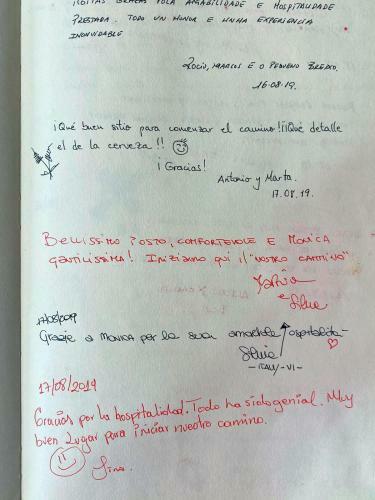 MOITAS GRACAS POLA AMABILIDADE E HOSPITALIDADE
PRESTADA. TODO UN HONOR E UNHA EXPERIENCIA
INOLVIDABLE
ROCIO, MARCOS E O PEQUENO
16.08.19.
¡Qué buen sitio para comenzar el camino!¡¡Qué detalle
el de la cerveza!!
¡Gracias!
Antonio y Marta.
17.08.19.
BELLISSIMO POSTO, CONFORTEVOLE E MONICA
GENTILISSIMA! INIZIAMO QUI IL "NOSTRO CAMMINO"
e
Silvia
17/08/2019
Grazie a MONICA per la sua amorevole ospitalità
Silvia
- ITALY - VI -
17/08/2019
Gracias por la hospitalidad. Todo ha sido genial. Muy
buen lugar para iniciar nuestro camino.